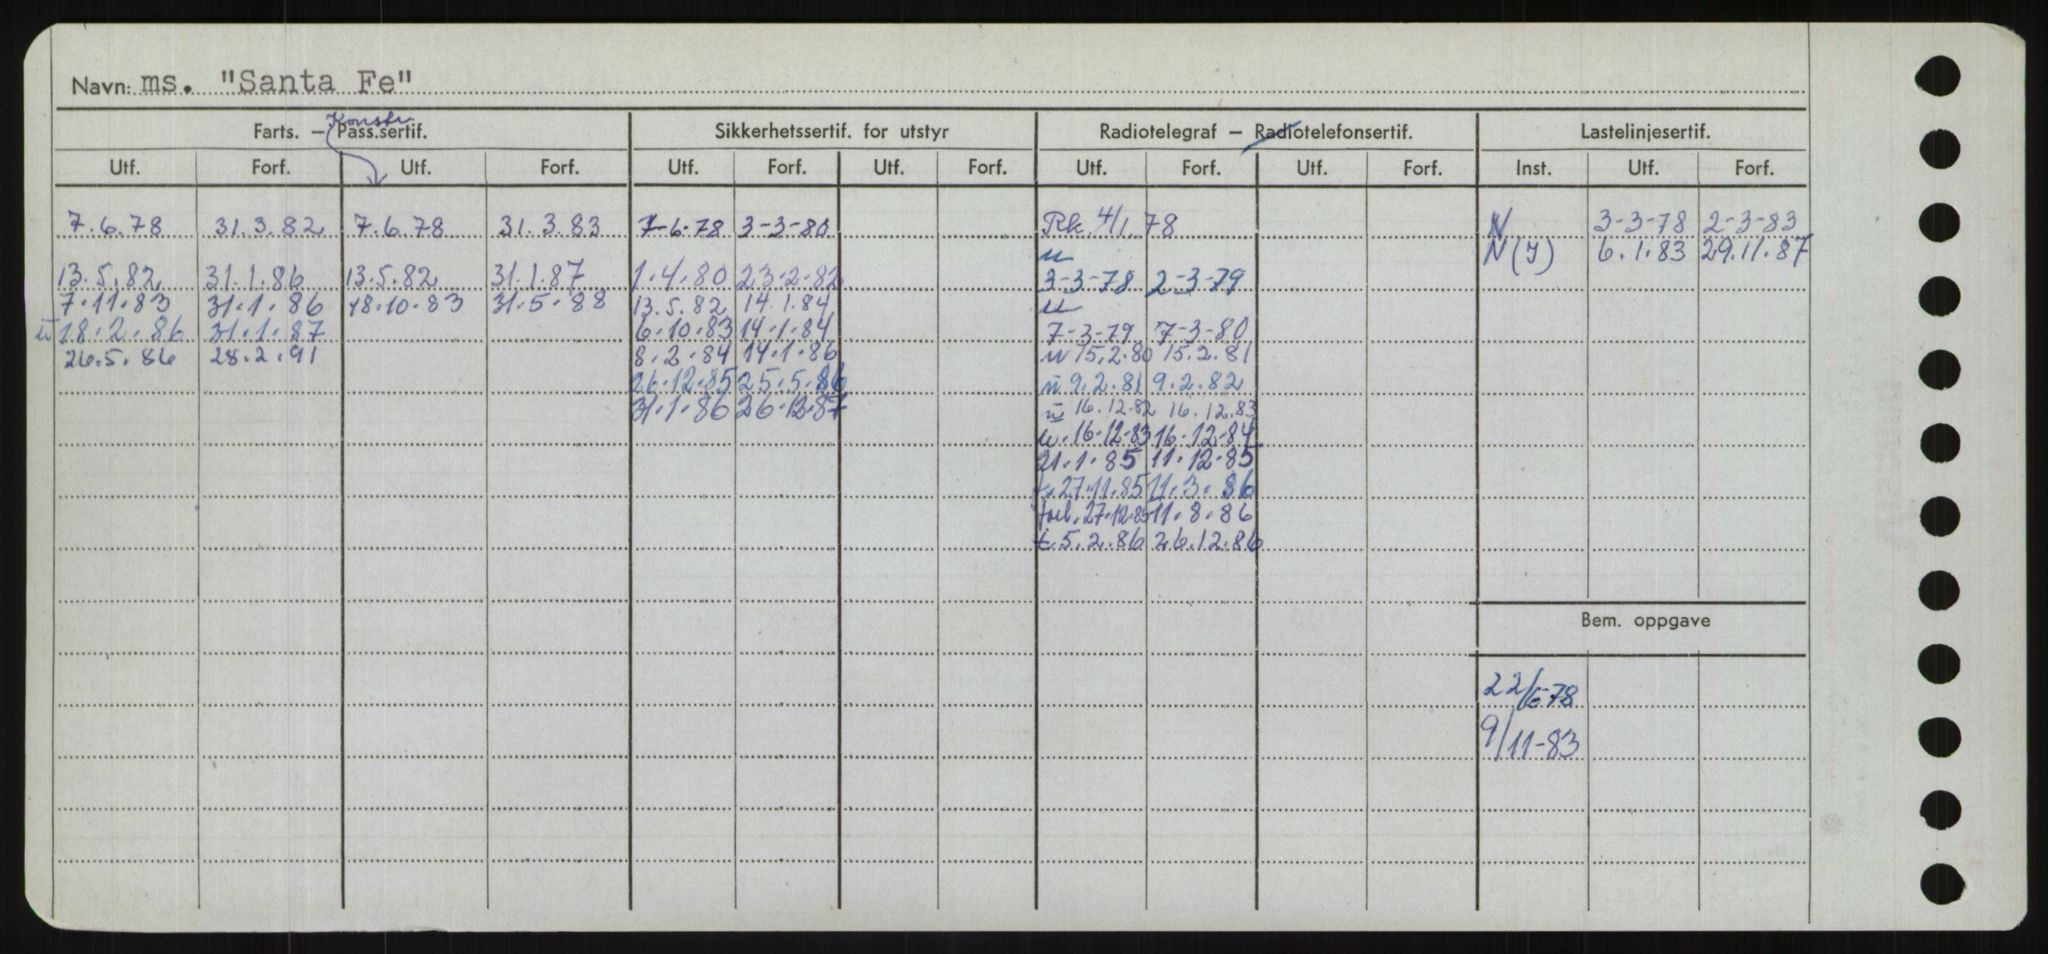 Navn: ms. "Santa Fe"
Konstr.
Farts. — Pass.sertif. Sikkerhetssertif. for utstyr Radiotelegraf — Radiotelefonsertif. Lastelinjesertif.
Utf. Forf. Utf. Forf. Utf. Forf. Utf. Forf. Utf. Forf. Utf. Forf. Inst. Utf. Forf.
7.6.78 31.3.82 7.6.78 31.3.83 7-6-78 3-3-80 Rk. 4/1 78 N 3-3-78 2-3-83
u N(Y) 6.1.83 29.11.87
13.5.82 31.1.86 13.5.82 31.1.87 1.4.80 23.2.82 3-3-78 2-3-79
7.11.83 31.1.86 18.10.83 31.5.88 13.5.82 14.1.84 u
u 18.2.86 31.1.87 6.10.83 14.1.84 7-3-79 7-3-80
26.5.86 28.2.91 8.2.84 14.1.86 u 15.2.80 15.2.81
26.12.85 25.5.86 u 9.2.81 9.2.82
31.1.86 26.12.87 u 16.12.82 16.12.83
u. 16.12.83 16.12.84
21.1.85 11.12.85
f. 27.11.85 11.3.86
forl. 27.12.85 11.8.86
t. 5.2.86 26.12.86
Bem. oppgave
22/6-78
9/11-83